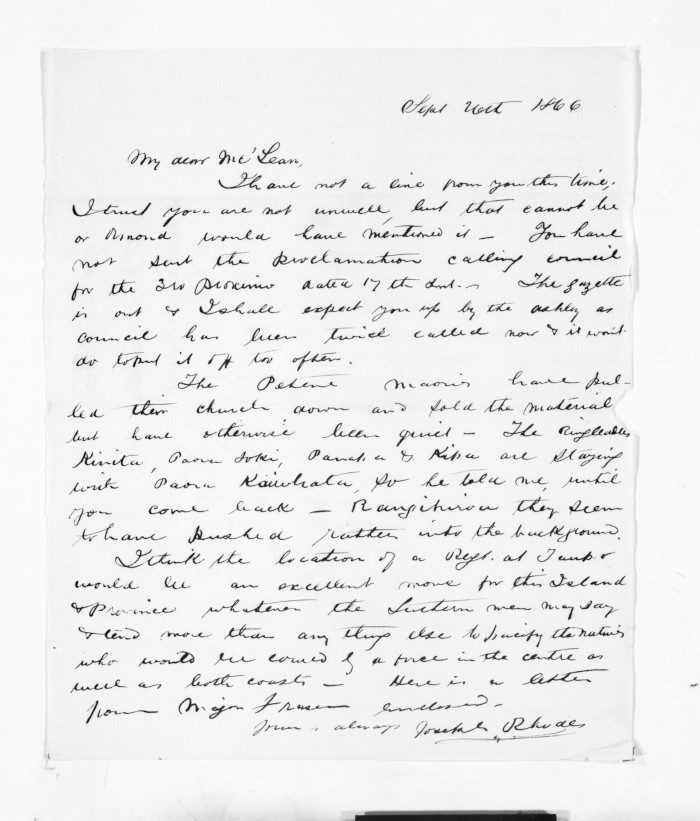 Sept 26th 1866
My dear McLean,
I have not a line from you this time.
I trust you are not unwell, but that cannot be
or Ormond would have mentioned it — You have
not sent the Proclamation calling council
for the 3rd Proximo dated 17th Inst. — The gazette
is out & I shall expect you up by the Ashley as
council has been twice called now & it won't
do to put it off too often.
The Petane maoris have pul-
led their church down and sold the material
but have otherwise been quiet — The Ringleaders
Kinita, Paora Toki, Panapa & Kipa are staying
with Paora Kaiwhata, so he told me, until
you come back — Rangihiroa they seem
to have pushed rather into the background.
I think the location of a Regt. at Taupo
would be an excellent move for this Island
& Province whatever the Southern men may say
& tend more than any thing else to pacify the natives
who would be cowed by a force in the centre as
well as both coasts — Here is a letter
from Major Fraser enclosed.
yours always Joseph Rhodes